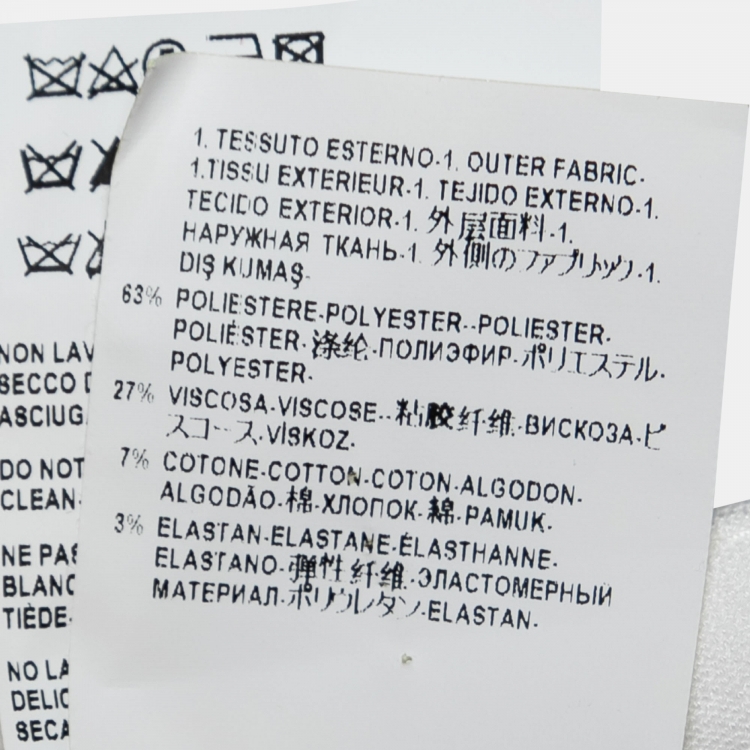 1. TESSUTO ESTERNO-1. OUTER FABRIC-
1.TISSU EXTERIEUR-1. TEJIDO EXTERNO-1.
TECIDO EXTERIOR-1. 外层面料-1.
НАРУЖНАЯ ТКАНЬ-1. 外側のファブリック-1.
DIŞ KUMAŞ-
63% POLIESTERE-POLYESTER--POLIESTER-
POLIÉSTER-涤纶-ПОЛИЭФИР-ポリエステル-
POLYESTER-
27% VISCOSA-VISCOSE--粘胶纤维-ВИСКОЗА-ビ
スコース-VİSKOZ-
7% COTONE-COTTON-COTON-ALGODON-
ALGODÃO-棉-ХЛОПОК-綿-PAMUK-
3% ELASTAN-ELASTANE-ÉLASTHANNE-
ELASTANO-弹性纤维-ЭЛАСТОМЕРНЫЙ
МАТЕРИАЛ-ポリウレタン-ELASTAN-
NON LAV
SECCO
ASCIUG
DO NOT
CLEAN-
NE PAS
BLANC
TIÈDE-
NO LA
DELIC
SECA